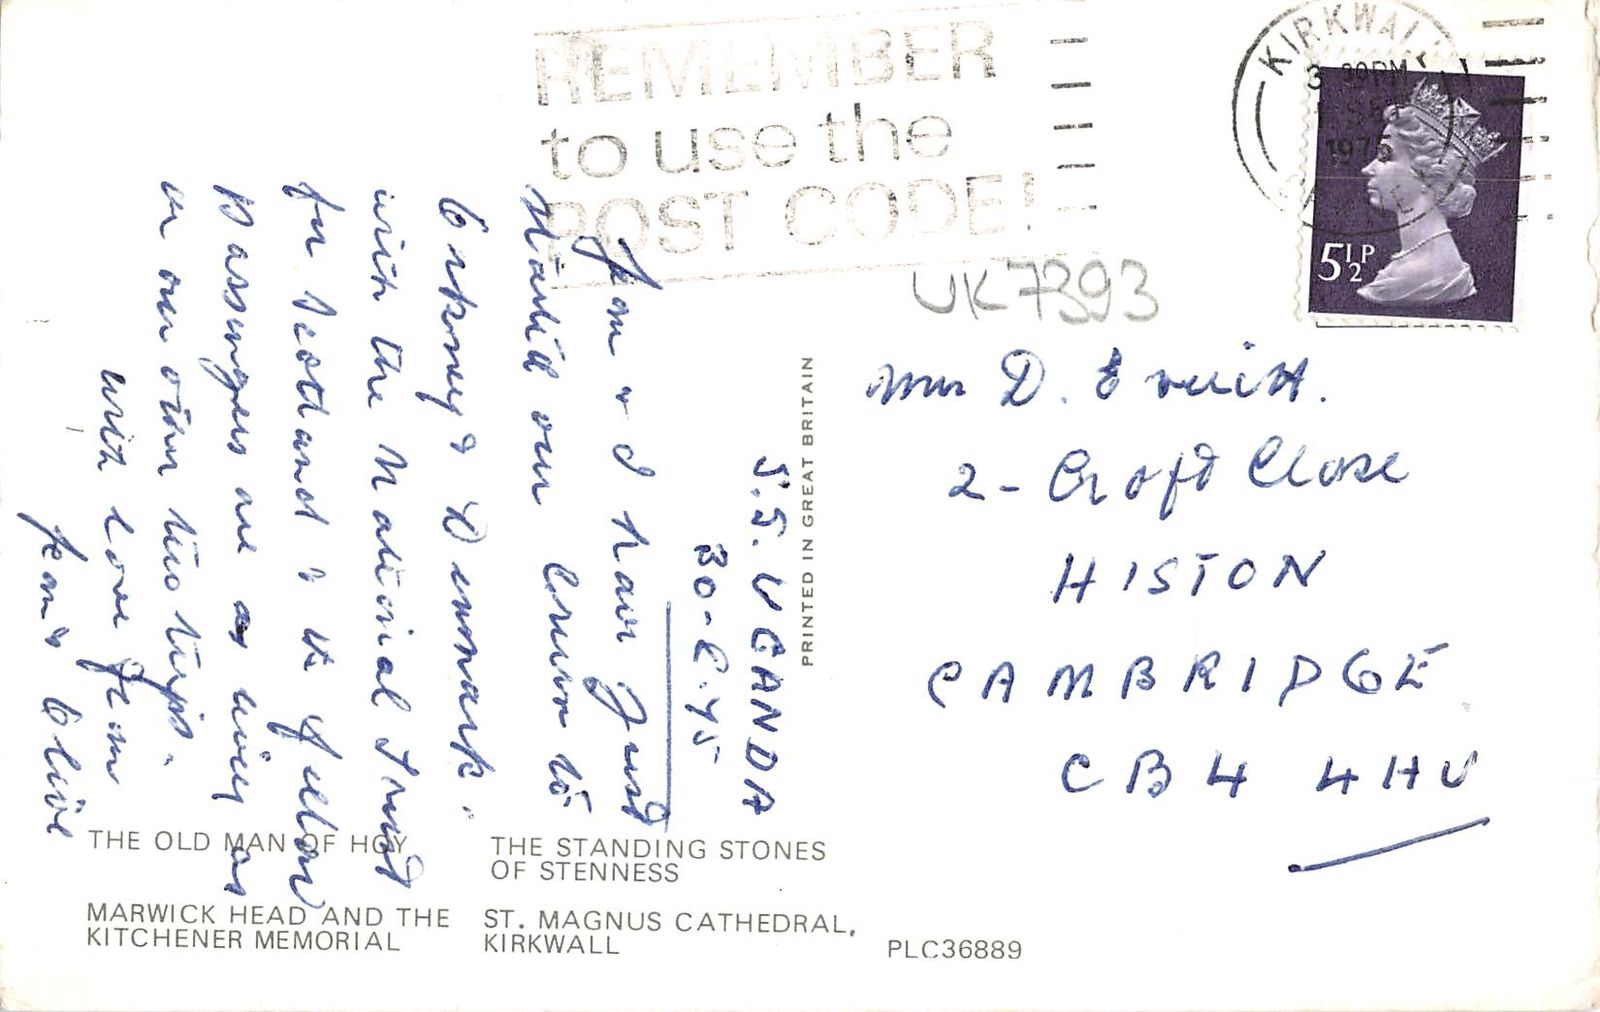 REMEMBER
to use the
POST CODE!
KIRKWALL
3 30PM
1 SE
1975
5½P
UK7393
S.S. UGANDA
30-8-75
Jean & I have just
started our cruise to
Orkney & Denmark.
with the National Trust
for Scotland & the fellow
Passengers are as nice as
on our other two trips.
with love from
Jean & Clive
PRINTED IN GREAT BRITAIN
Mrs D.
2 - Croft Close
HISTON
CAMBRIDGE
CB4 4HU
THE OLD MAN OF HOY
THE STANDING STONES
OF STENNESS
MARWICK HEAD AND THE
KITCHENER MEMORIAL
ST. MAGNUS CATHEDRAL,
KIRKWALL
PLC36889